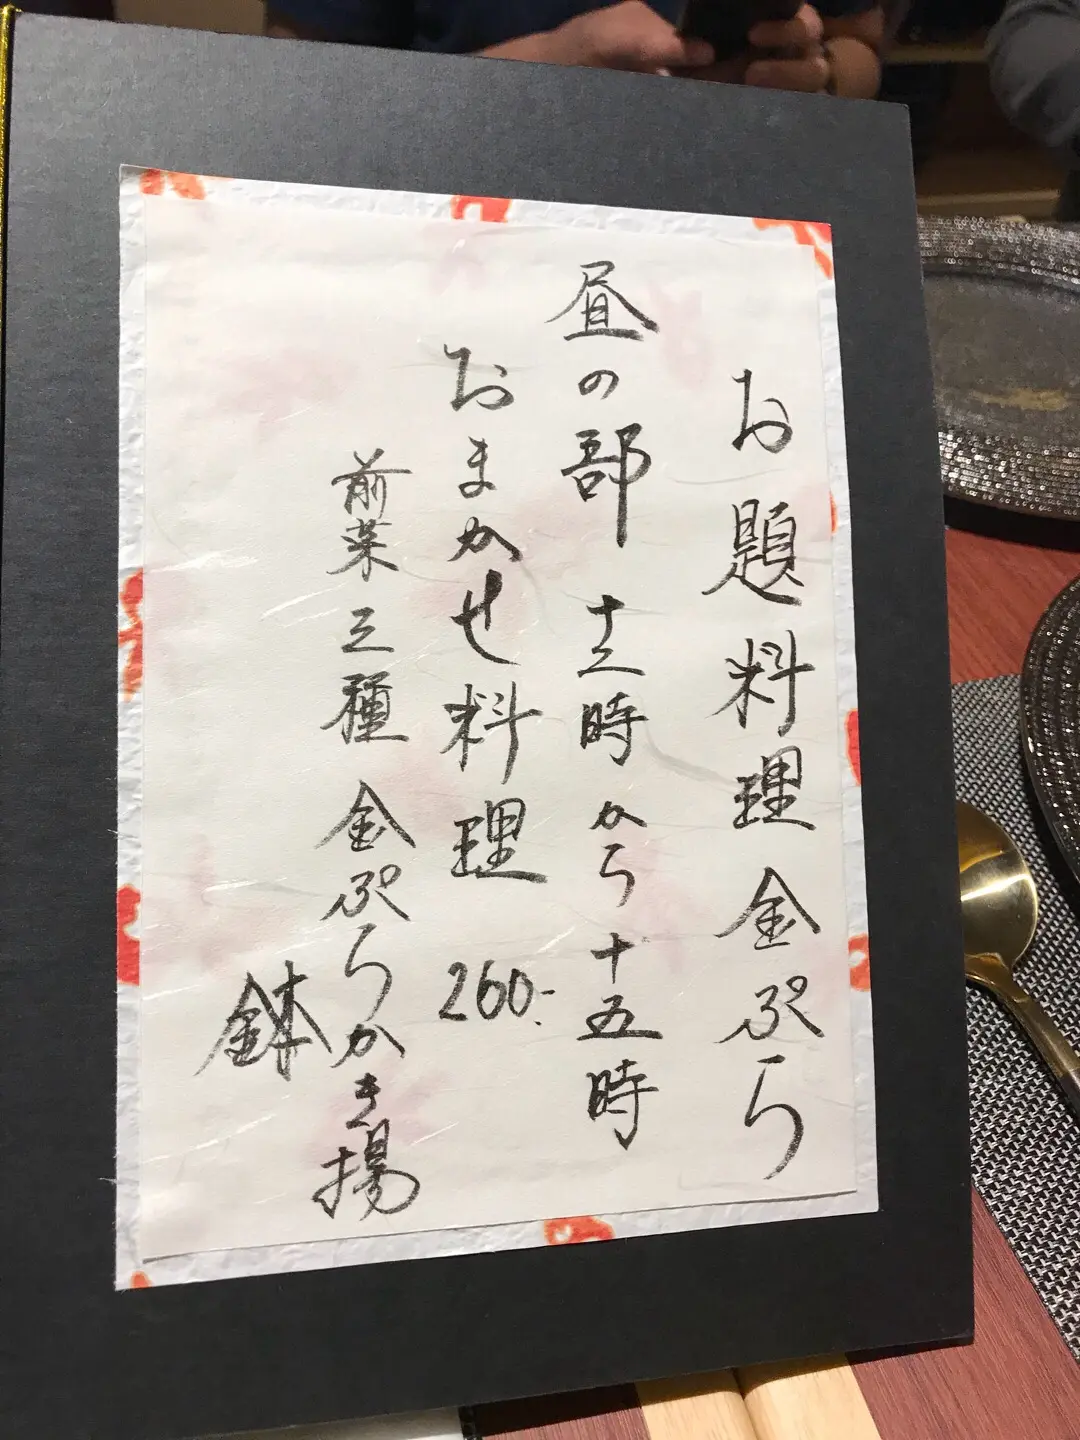 お題料理金ぷら
昼の部 十二時から十五時
おまかせ料理 260.-
前菜三種 金ぷらかき揚
鉢